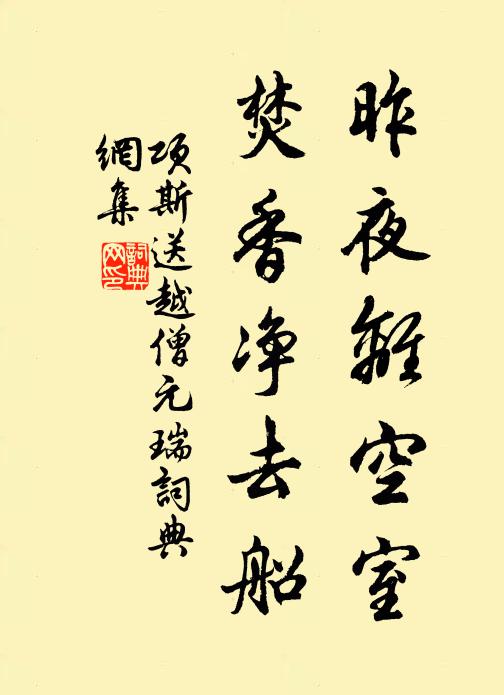 昨夜離空室
焚香净去船
項斯送越僧元瑞詞典
網集
詞典
网印